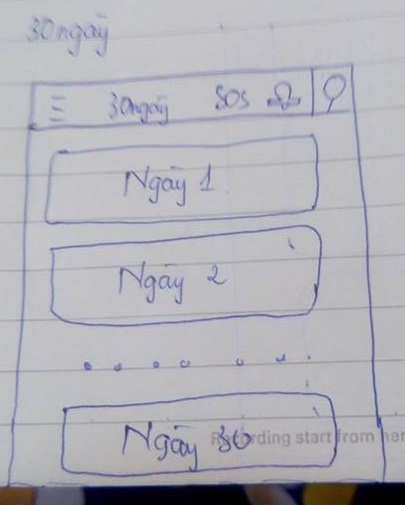 30 ngày
30ngày SOS
Ngày 1
Ngày 2
Ngày 30
rding start from